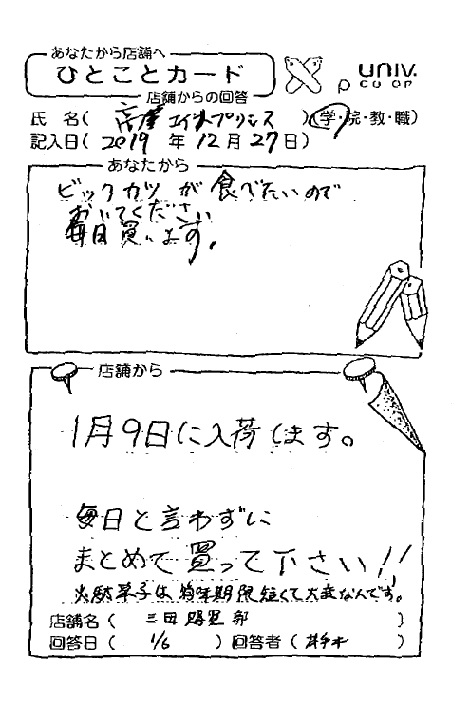 あなたから店舗へ
ひとことカード
店舗からの回答
univ.
co op
氏 名( プリンス )(学・院・教・職)
記入日(2019 年 12月 27日)
あなたから
ビックカツが食べたいので
おいてください
毎日買います。
店舗から
1月9日に入荷します。
毎日と言わずに
まとめて買って下さい!!
駄菓子は 期限短くて大変なんです。
店舗名( 三田 部 )
回答日( 1/6 )回答者( )